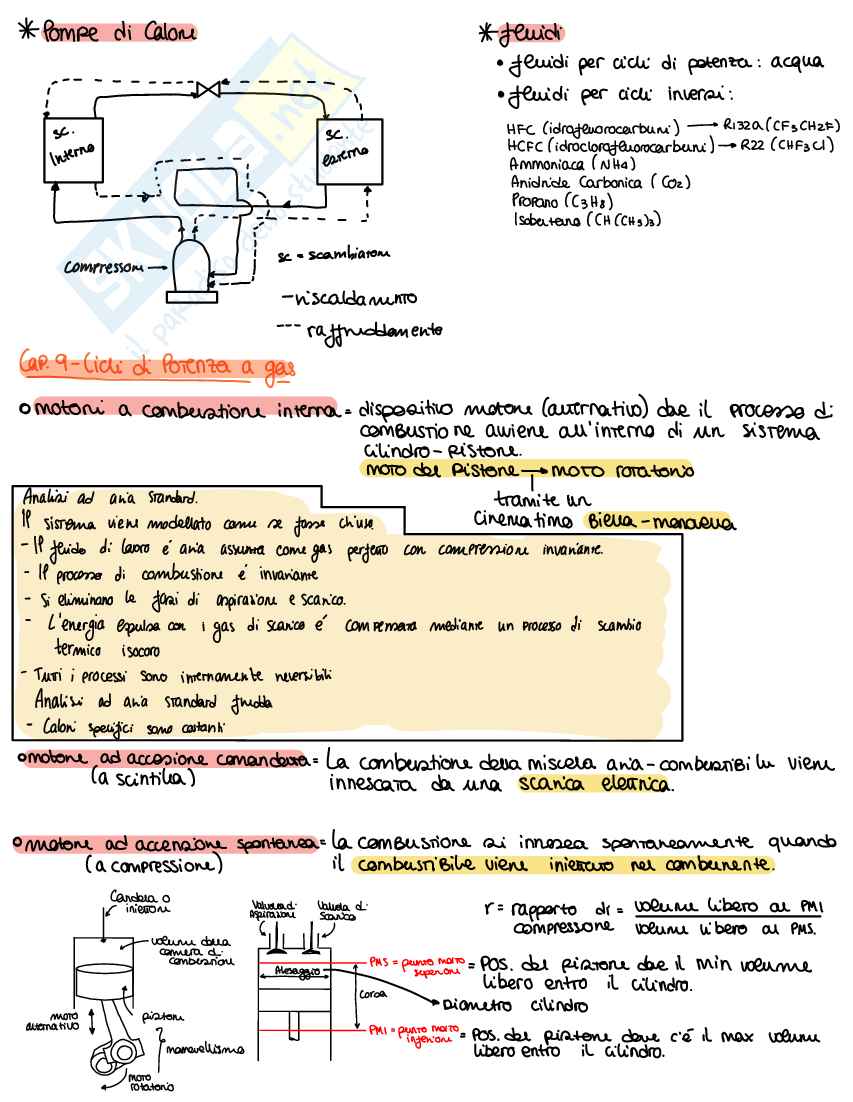 * Pompe di Calore
SC. Interno
SC. esterno
compressore
SC = scambiatore
riscaldamento
raffreddamento
SKUOLA.net
il paradiso dello studente
* Fluidi
• fluidi per cicli di potenza: acqua
• fluidi per cicli inversi:
HFC (idrofluorocarburi) → R132a (CF3CH2F)
HCFC (idroclorofluorocarburi) → R22 (CHF3Cl)
Ammoniaca (NH4)
Anidride Carbonica (CO2)
Propano (C3H8)
Isobutano (CH(CH3)3)
Cap. 9 - Cicli di Potenza a gas
motori a combustione interna = dispositivo motore (alternativo) dove il processo di
combustione avviene all'interno di un sistema
cilindro-pistone.
moto del pistone → moto rotatorio
tramite un
cinematismo Biella-manovella
Analisi ad aria standard.
Il sistema viene modellato come se fosse chiuso
- Il fluido di lavoro é aria assunta come gas perfetto con compressione invariante.
- Il processo di combustione é invariante
- Si eliminano le fasi di aspirazione e scarico.
- L'energia espulsa con i gas di scarico é compensata mediante un processo di scambio
termico isocoro
- Tutti i processi sono internamente reversibili
Analisi ad aria standard fredda
- Calori specifici sono costanti
motore ad accesione comandata = La combustione della miscela aria-combustibile viene
(a scintilla) innescata da una scarica elettrica.
motore ad accensione spontanea = la combustione si innesca spontaneamente quando
(a compressione) il combustibile viene iniettato nel comburente.
Candela o
iniettore
volume della
camera di
combustione
pistone
moto
alternativo
manovellismo
moto
rotatorio
Valvola di
Aspirazione
Valvola di
scarico
Alesaggio
Corsa
r = rapporto di compressone = volume libero al PMI / volume libero al PMS.
PMS = punto morto superiore = POS. del pistone dove il min volume
libero entro il cilindro.
Diametro cilindro
PMI = punto morto inferiore = POS. del pistone dove c'é il max volume
libero entro il cilindro.